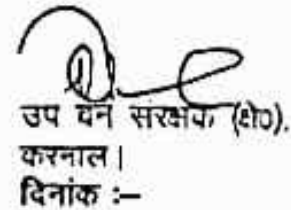 उप वन संरक्षक (क्षे०),
करनाल।
दिनांक :–